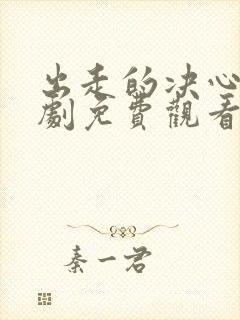 出走的决心
劇免費觀看
秦一君